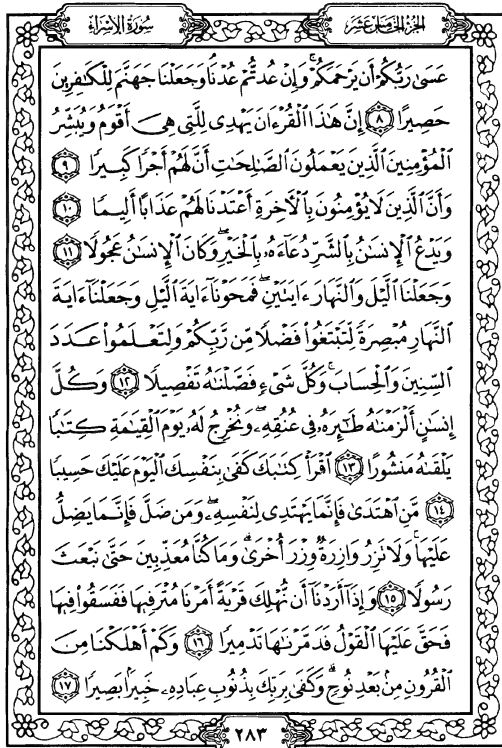 سورة الإسراء
الجزء الخامس عشر
عَسَىٰ رَبُّكُمْ أَن يَرْحَمَكُمْ ۚ وَإِنْ عُدتُّمْ عُدْنَا ۘ وَجَعَلْنَا جَهَنَّمَ لِلْكَٰفِرِينَ
حَصِيرًا ۝٨ إِنَّ هَٰذَا الْقُرْءَانَ يَهْدِى لِلَّتِى هِىَ أَقْوَمُ وَيُبَشِّرُ
الْمُؤْمِنِينَ الَّذِينَ يَعْمَلُونَ الصَّٰلِحَٰتِ أَنَّ لَهُمْ أَجْرًا كَبِيرًا ۝٩
وَأَنَّ الَّذِينَ لَا يُؤْمِنُونَ بِالْءَاخِرَةِ أَعْتَدْنَا لَهُمْ عَذَابًا أَلِيمًا ۝١٠
وَيَدْعُ الْإِنسَٰنُ بِالشَّرِّ دُعَآءَهُۥ بِالْخَيْرِ ۖ وَكَانَ الْإِنسَٰنُ عَجُولًا ۝١١
وَجَعَلْنَا الَّيْلَ وَالنَّهَارَ ءَايَتَيْنِ ۖ فَمَحَوْنَآ ءَايَةَ الَّيْلِ وَجَعَلْنَآ ءَايَةَ
النَّهَارِ مُبْصِرَةً لِّتَبْتَغُوا۟ فَضْلًا مِّن رَّبِّكُمْ وَلِتَعْلَمُوا۟ عَدَدَ
السِّنِينَ وَالْحِسَابَ ۚ وَكُلَّ شَىْءٍ فَصَّلْنَٰهُ تَفْصِيلًا ۝١٢ وَكُلَّ
إِنسَٰنٍ أَلْزَمْنَٰهُ طَٰٓئِرَهُۥ فِى عُنُقِهِۦ ۖ وَنُخْرِجُ لَهُۥ يَوْمَ الْقِيَٰمَةِ كِتَٰبًا
يَلْقَىٰهُ مَنشُورًا ۝١٣ اقْرَأْ كِتَٰبَكَ كَفَىٰ بِنَفْسِكَ الْيَوْمَ عَلَيْكَ حَسِيبًا
۝١٤ مَّنِ اهْتَدَىٰ فَإِنَّمَا يَهْتَدِى لِنَفْسِهِۦ ۖ وَمَن ضَلَّ فَإِنَّمَا يَضِلُّ
عَلَيْهَا ۚ وَلَا تَزِرُ وَازِرَةٌ وِزْرَ أُخْرَىٰ ۗ وَمَا كُنَّا مُعَذِّبِينَ حَتَّىٰ نَبْعَثَ
رَسُولًا ۝١٥ وَإِذَآ أَرَدْنَآ أَن نُّهْلِكَ قَرْيَةً أَمَرْنَا مُتْرَفِيهَا فَفَسَقُوا۟ فِيهَا
فَحَقَّ عَلَيْهَا الْقَوْلُ فَدَمَّرْنَٰهَا تَدْمِيرًا ۝١٦ وَكَمْ أَهْلَكْنَا مِنَ
الْقُرُونِ مِنۢ بَعْدِ نُوحٍ ۗ وَكَفَىٰ بِرَبِّكَ بِذُنُوبِ عِبَادِهِۦ خَبِيرًۢا بَصِيرًا ۝١٧
٢٨٣